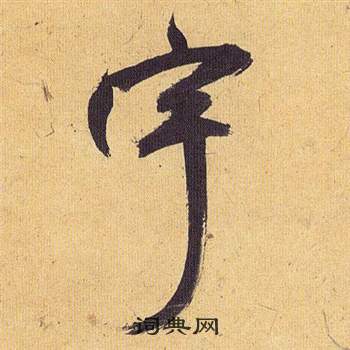 宇
词典网